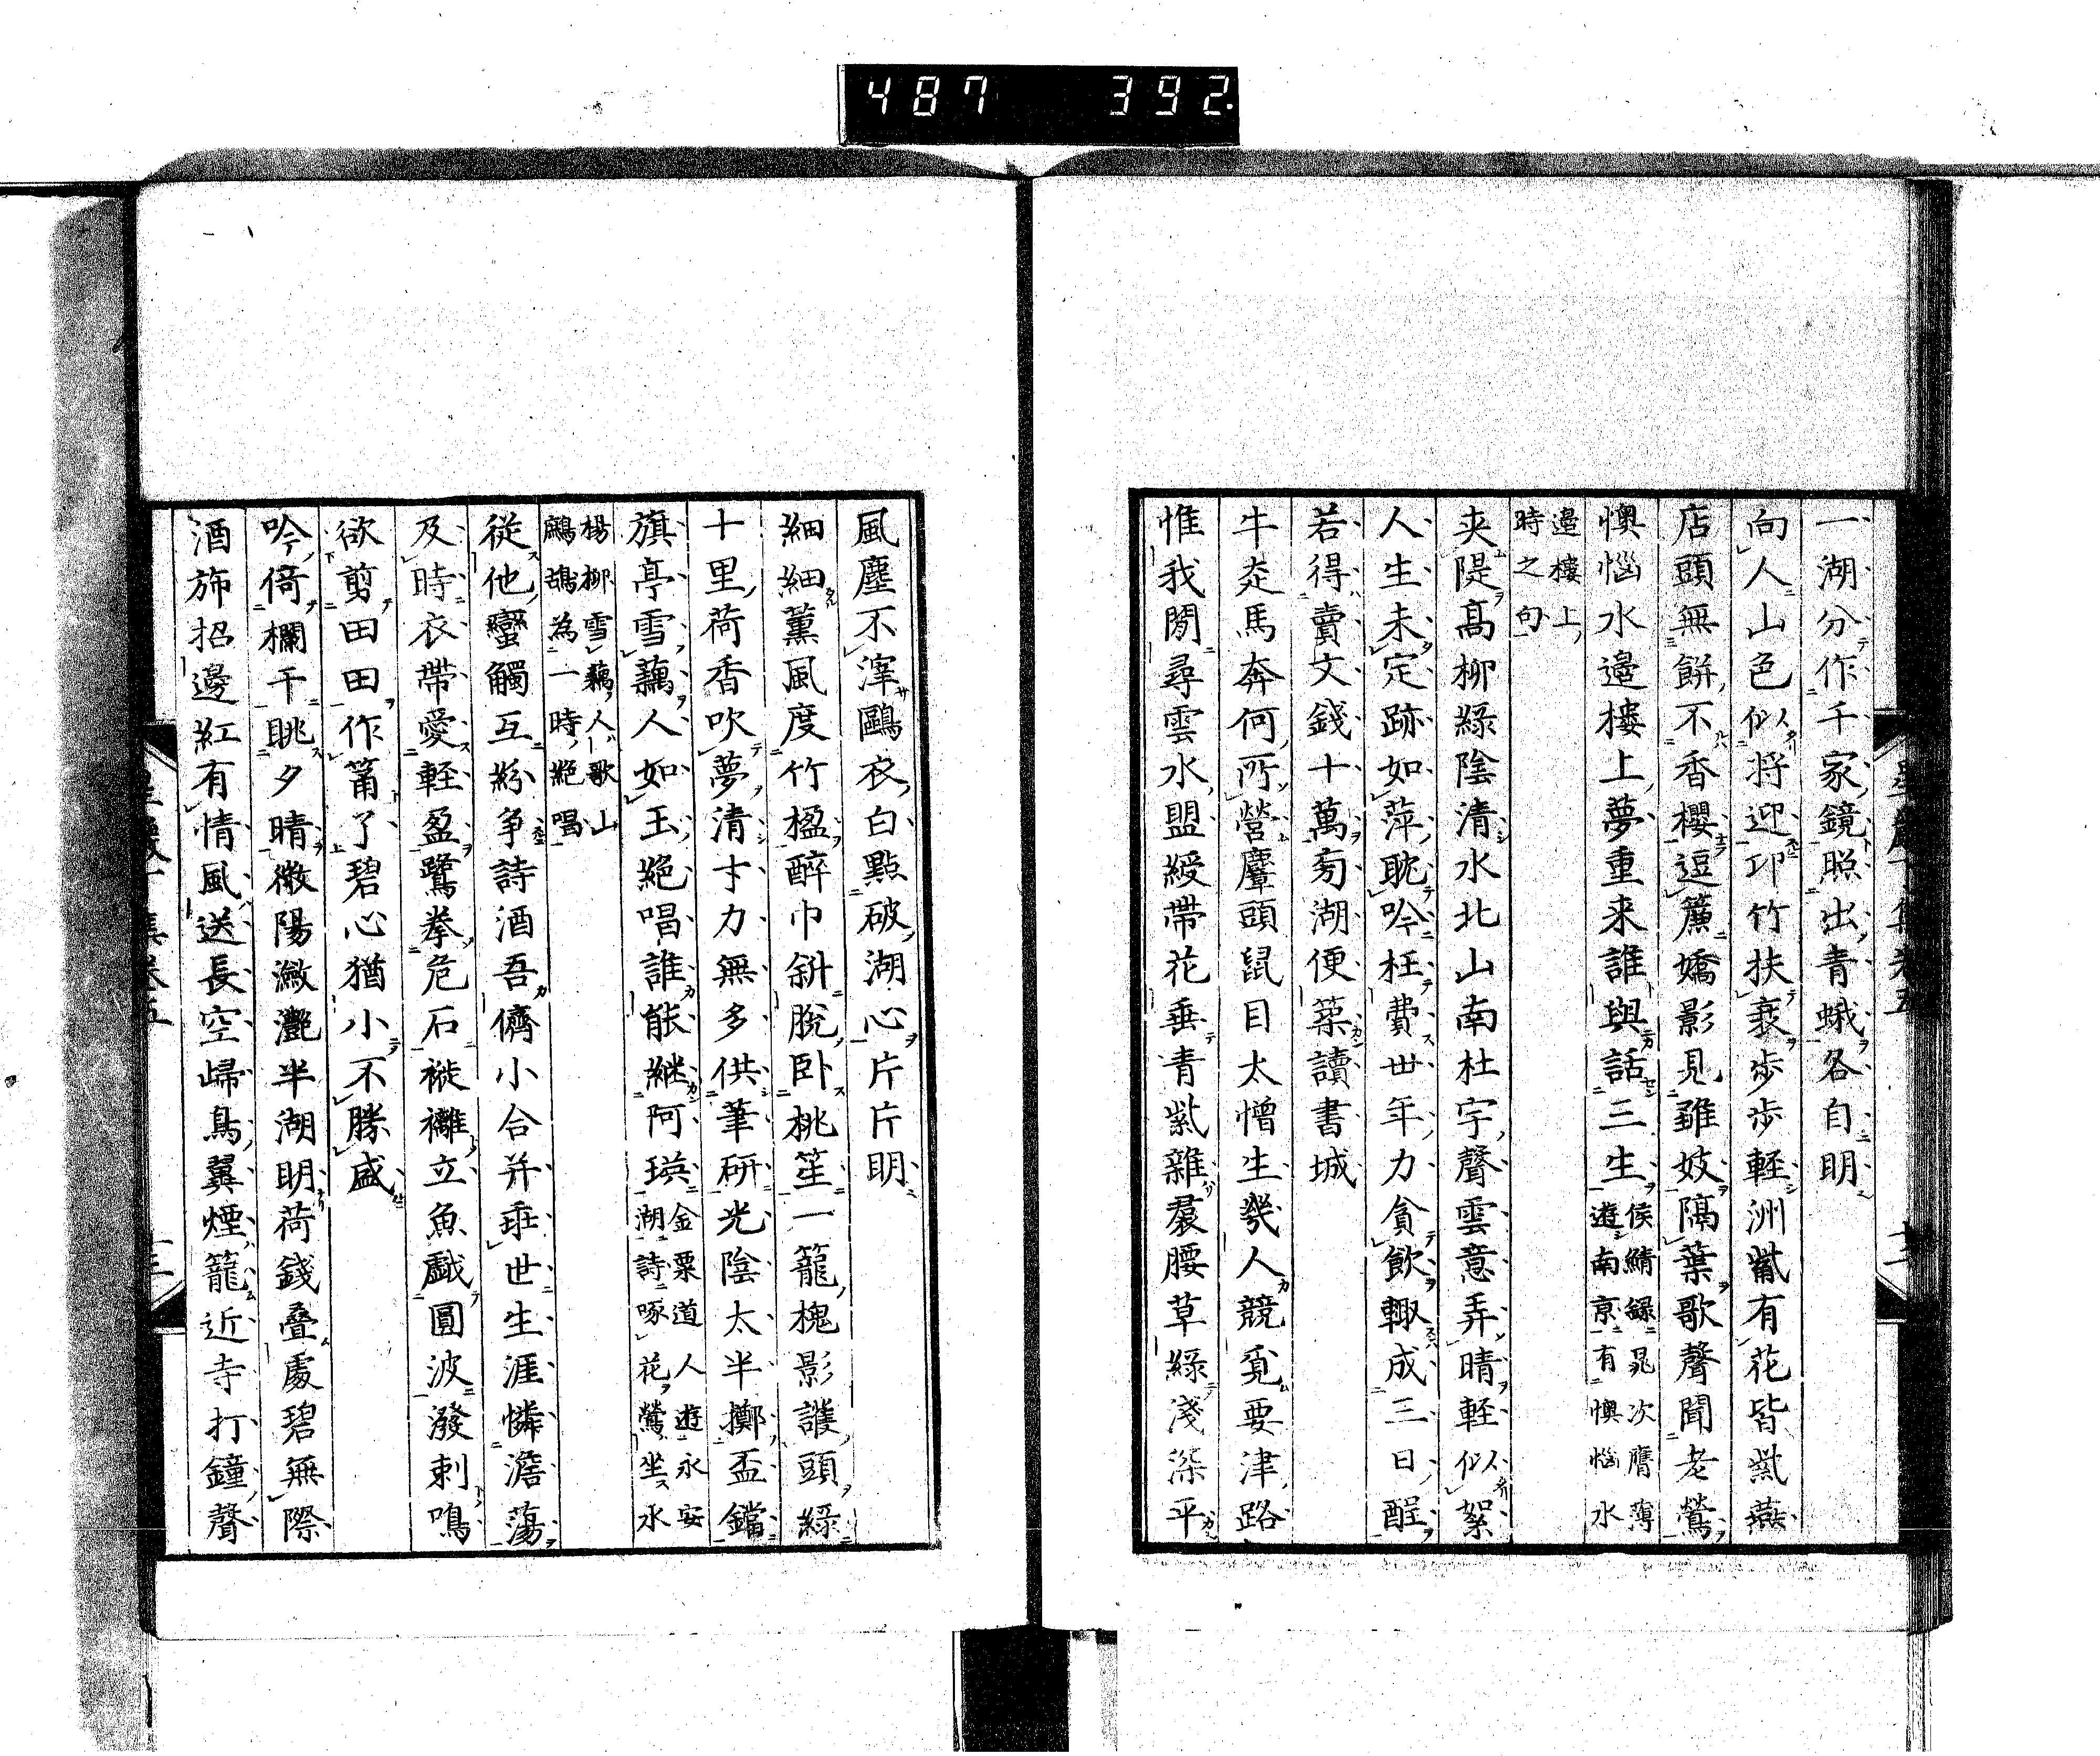 487 392
一湖分作千家鏡照出青蛾各自明
向人山色似將迎邛竹扶衰步步輕洲鷰有花皆紫燕
店頭無餅不香櫻逗簾嬌影見雛妓隔葉歌聲聞老鶯
懊惱水邉樓上夢重来誰與話三生侯鯖錄晁次膺薄遊南京有懊惱水
邉樓上時之句
夾隄高柳綠陰清水北山南杜宇聲雲意弄晴輕似絮
人生未定跡如萍耽吟枉費丗年力貪飲輙成三日酲
若得賣文錢十萬匆湖便築讀書城
牛走馬奔何所營麞頭鼠目太憎生幾人競覓要津路
惟我閒尋雲水盟綬帶花垂青紫雜裠腰草綠淺深平
風塵不滓鷗衣白點破湖心片片明
細細薰風度竹楹醉巾斜脫卧桃笙一籠槐影護頭綠
十里荷香吹夢清才力無多供筆研光陰太半擲盃鐺
旗亭雪藕人如玉絕唱誰能継阿瑛金粟道人遊永安湖詩啄花鶯坐水
楊柳雪藕人歌山鷓鴣為一時絕唱
従他蠻觸互紛争詩酒吾儕小合并乖世生涯憐澹蕩
及時衣帶愛輕盈鷺拳危石褷褷立魚戲圓波潑刺鳴
欲剪田田作筩了碧心猶小不勝盛
吟倚欄干眺夕晴微陽瀲灧半湖明荷錢叠處碧無際
酒斾招邊紅有情風送長空歸鳥翼煙籠近寺打鐘聲